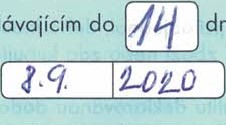 ávajícím do 14 dn
8.9. 2020